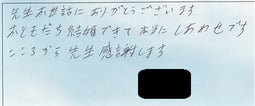 先生お世話に ありがとうございます
おともだち 結婚できて 本当に しあわせです
こころから 先生 感謝します